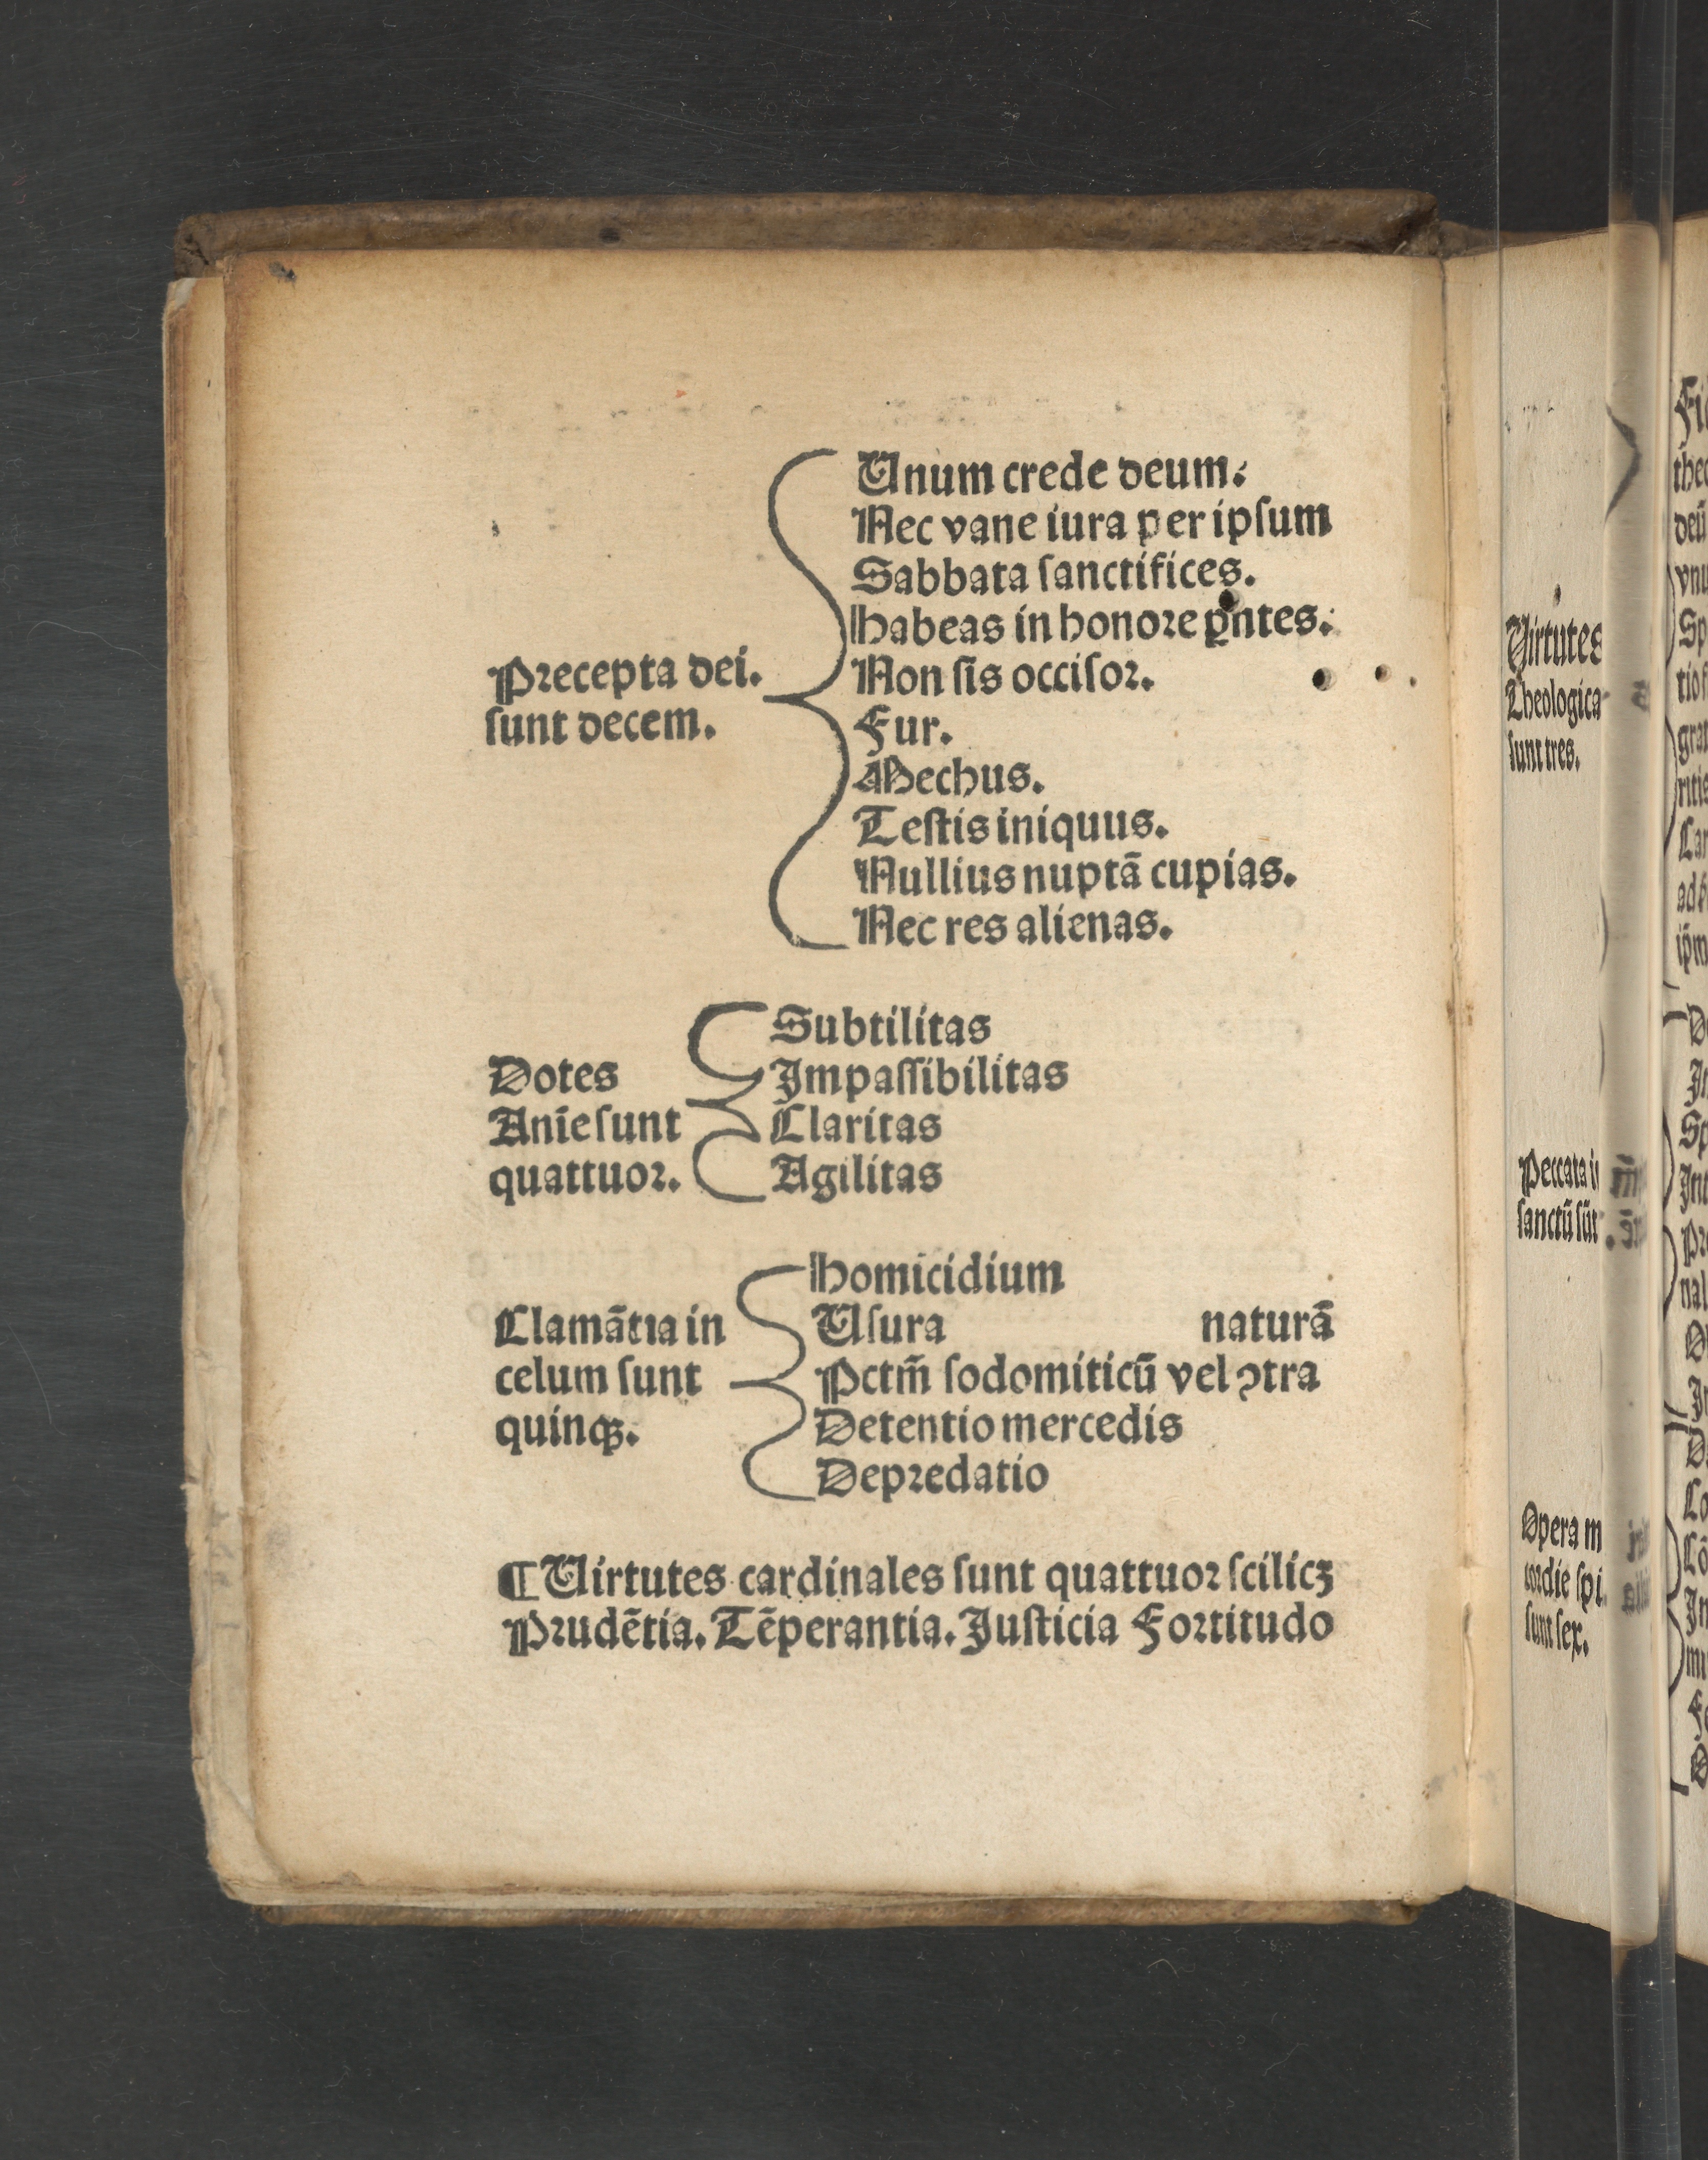 Precepta dei.
sunt decem.
Unum crede deum.
Nec vane iura per ipsum
Sabbata sanctifices.
Habeas in honore pͣntes.
Non sis occisor.
Fur.
Mechus.
Testis iniquus.
Nullius nuptā cupias.
Nec res alienas.
Dotes
Anīe sunt
quattuor.
Subtilitas
Impassibilitas
Claritas
Agilitas
Clamātia in
celum sunt
quinqꝫ.
Homicidium
Usura naturā
Pctm̄ sodomiticū vel ꝯtra
Detentio mercedis
Depredatio
¶ Uirtutes cardinales sunt quattuor scilicꝫ
Prudētia. Tēperantia. Justicia Fortitudo
Uirtutes
Theologica
sunt tres.
Peccata i
sanctū sūt
Opera m
cordie spi
sunt sex.